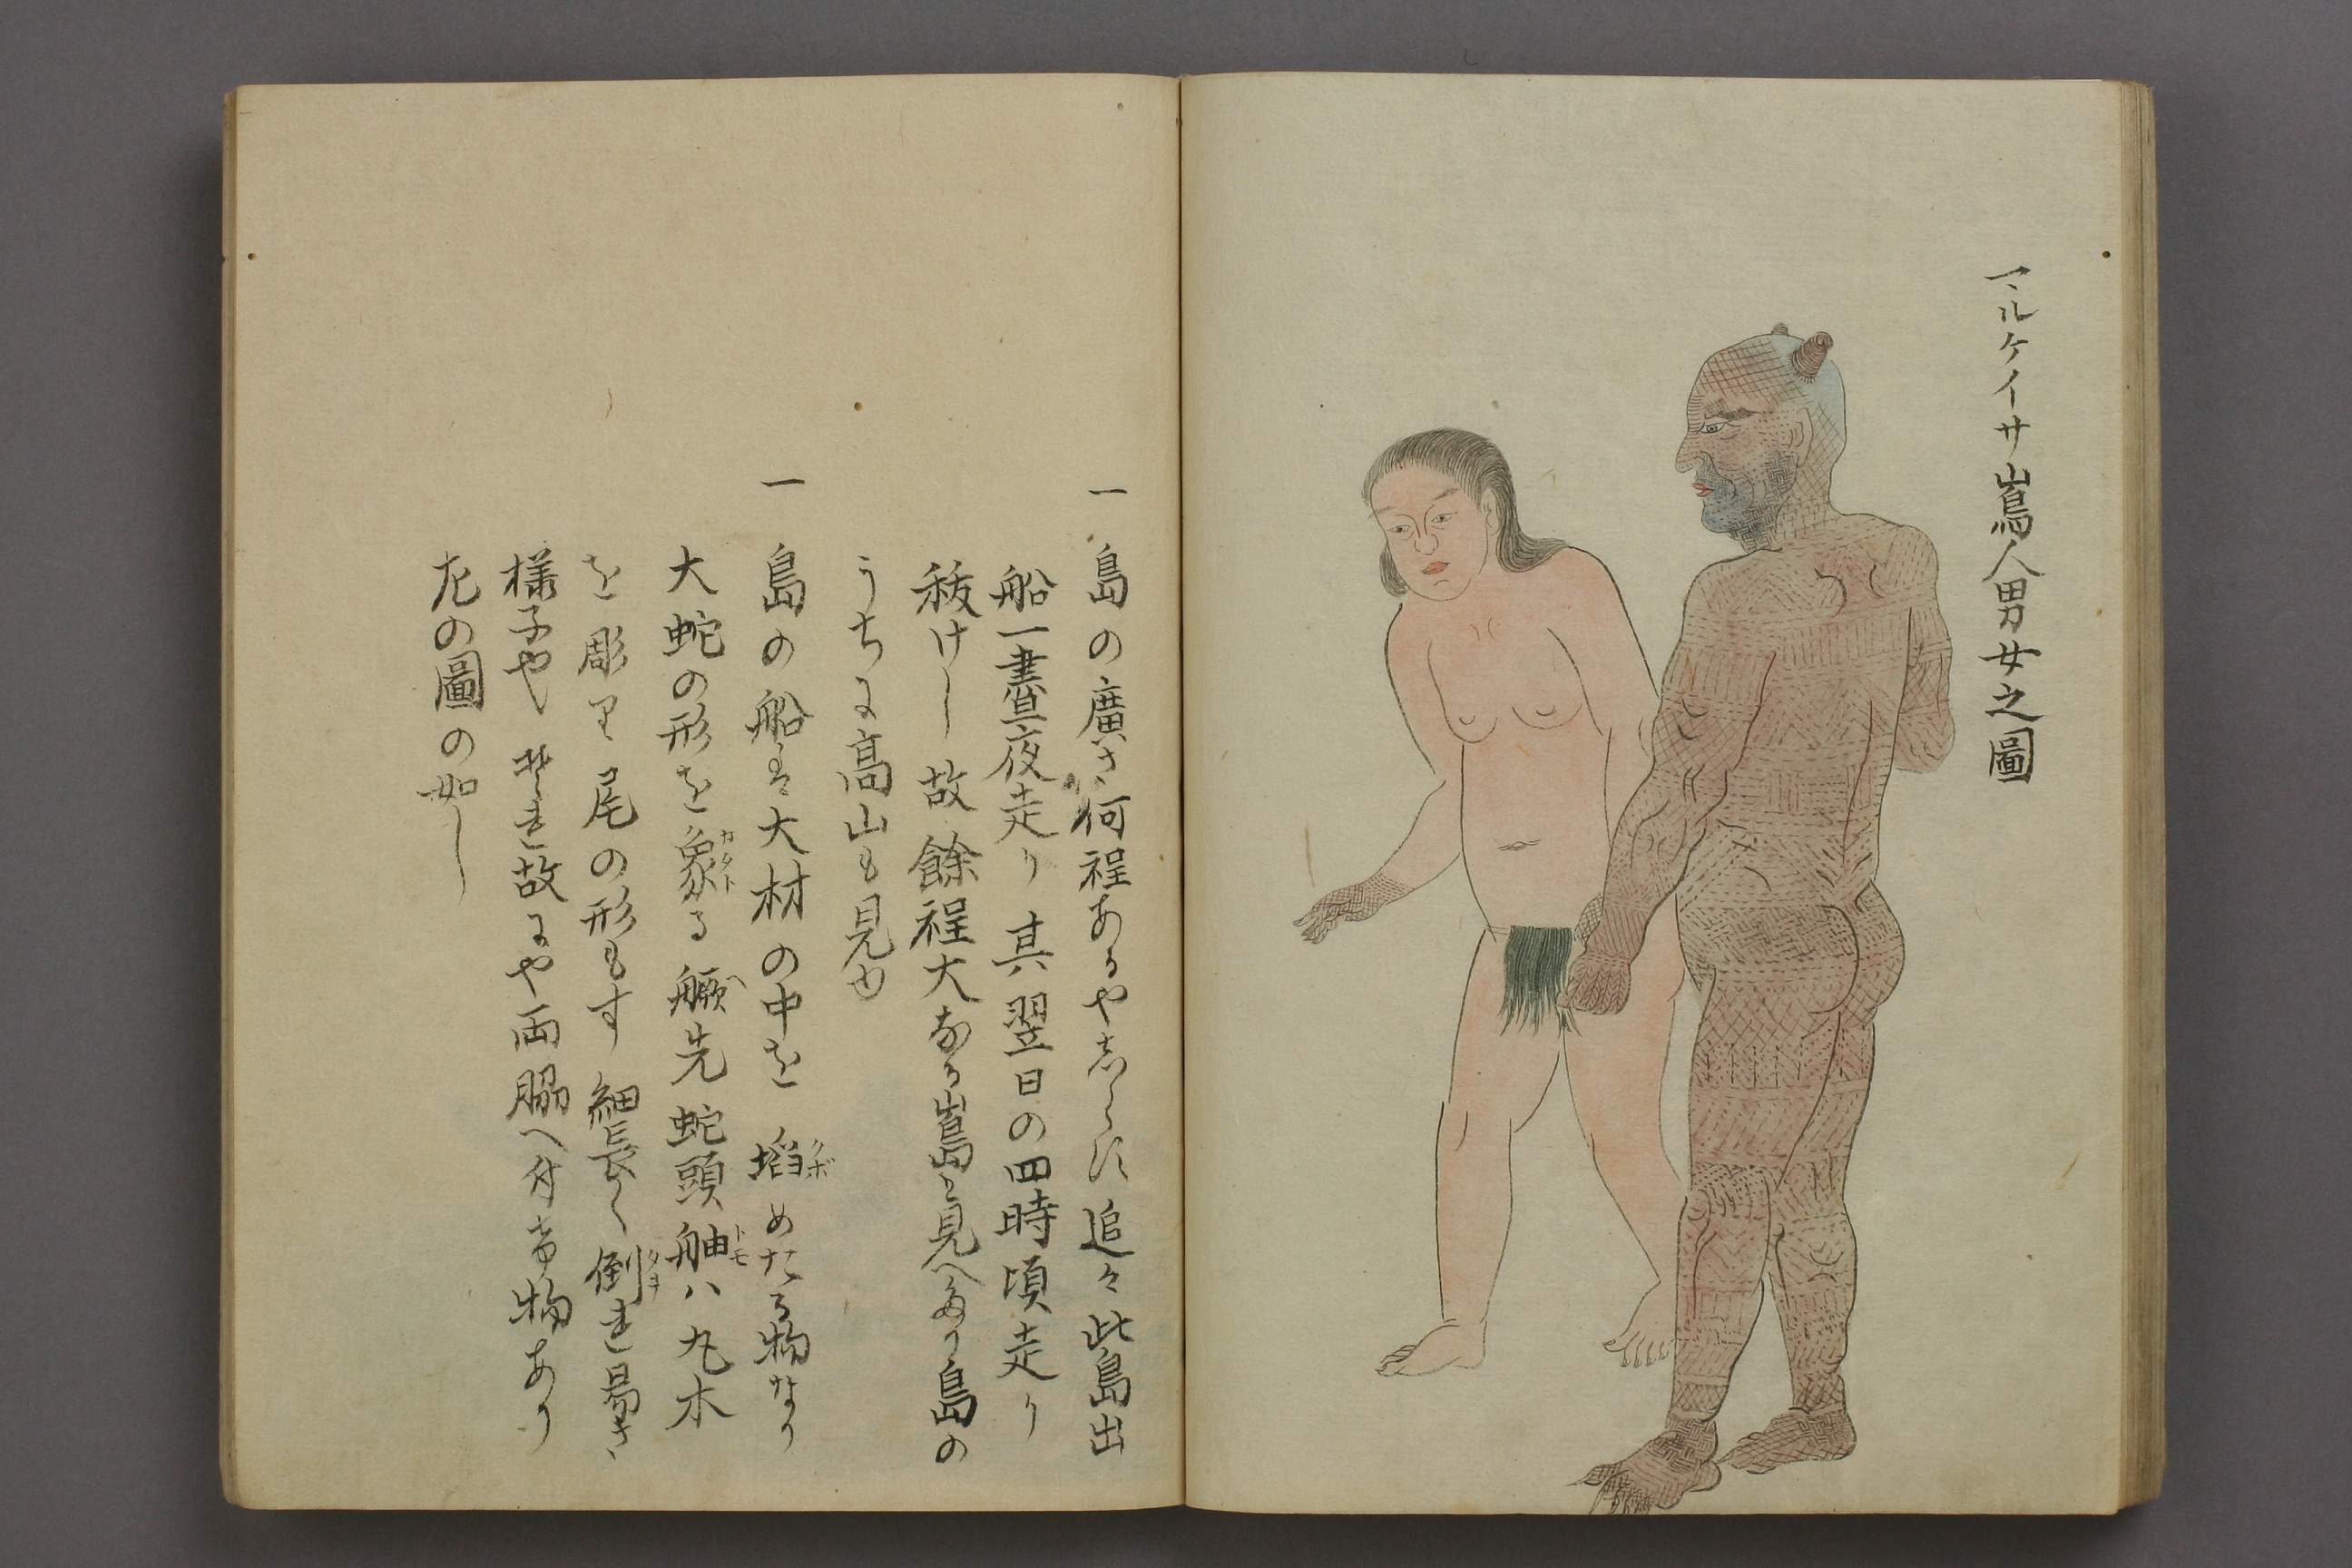 マルケイサ嶌人男女之圖
一島の廣さ何程あるやしらず追々此島出
船一晝夜走り其翌日の四時頃走り
秡けし故餘程大なる嶌と見へたり島の
うちに高山も見ゆ
一島の船は大材の中を掐クボめたる物なり
大蛇の形を象カタドる艥へ先蛇頭舳トモハ丸木
を彫りて尾の形もす細長く倒タヲれ易き
様子也それ故にや両脇へ付き物あり
左の圖の如し